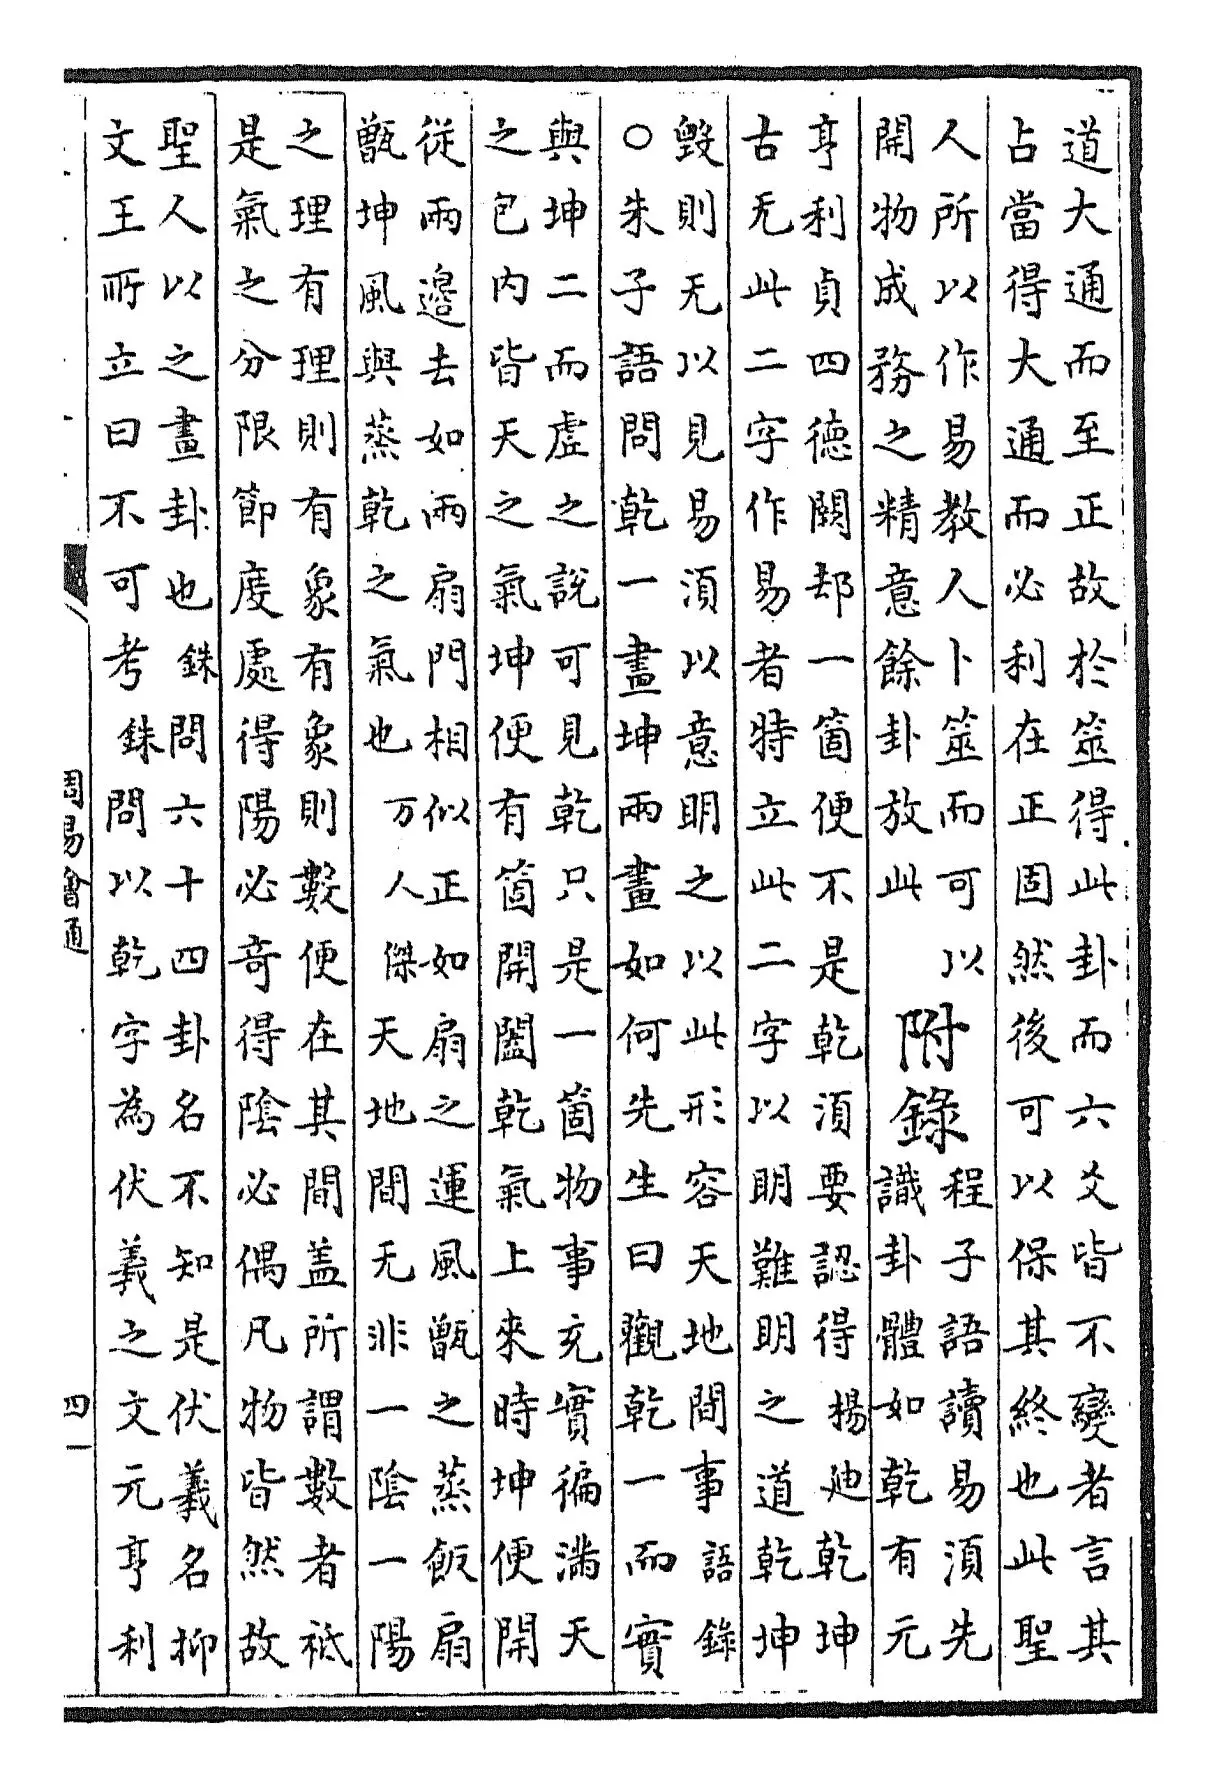 道大通而至正故於筮得此卦而六爻皆不變者言其
占當得大通而必利在正固然後可以保其終也此聖
人所以作易教人卜筮而可以
開物成務之精意餘卦放此
附錄
程子語讀易須先
識卦體如乾有元
亨利貞四德闕却一箇便不是乾須要認得楊廸乾坤
古无此二字作易者特立此二字以明難明之道乾坤
毀則无以見易須以意明之以此形容天地間事語錄
○朱子語問乾一畫坤兩畫如何先生曰觀乾一而實
與坤二而虛之說可見乾只是一箇物事充實徧滿天
之包内皆天之氣坤便有箇開闔乾氣上來時坤便開
從兩邊去如兩扇門相似正如扇之運風甑之蒸飯扇
甑坤風與蒸乾之氣也万人傑天地間无非一陰一陽
之理有理則有象有象則數便在其間盖所謂數者祇
是氣之分限節度處得陽必奇得陰必偶凡物皆然故
聖人以之畫卦也銖問六十四卦名不知是伏羲名抑
文王所立曰不可考銖問以乾字為伏羲之文元亨利
周易會通
四一